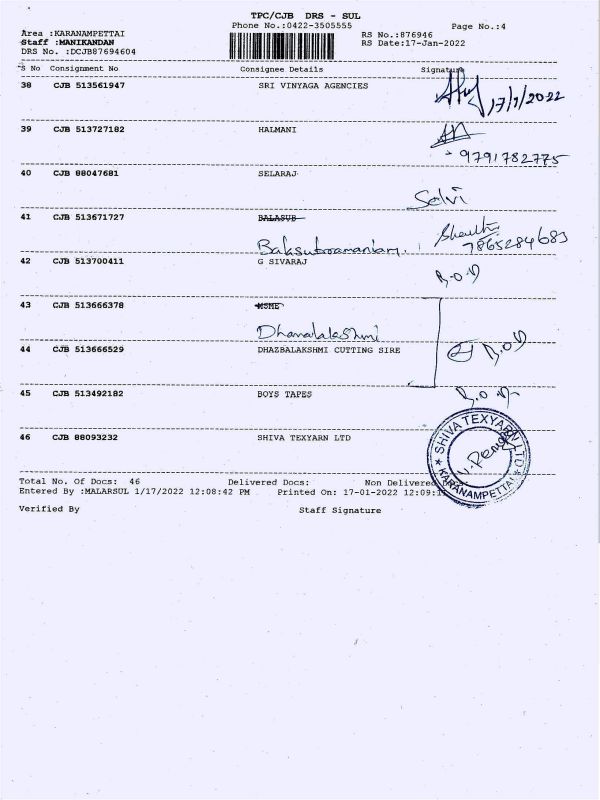 TPC/CJB DRS - SUL
Phone No.:0422-3505555
Page No.:4
Area :KARANAMPETTAI
Staff :MANIKANDAN
DRS No. :DCJB87694604
RS No.:876946
RS Date:17-Jan-2022
S No Consignment No Consignee Details Signature
38 CJB 513561947 SRI VINYAGA AGENCIES
17/1/2022
39 CJB 513727182 HALMANI
9791782775
40 CJB 88047681 SELARAJ
Selvi
41 CJB 513671727 BALASUB
Balasubramaniam. 7865284683
42 CJB 513700411 G SIVARAJ
B.O.D
43 CJB 513666378 MSME
Dhanalakshmi
44 CJB 513666529 DHAZBALAKSHMI CUTTING SIRE
B.O.D
45 CJB 513492182 BOYS TAPES
B.O.D
46 CJB 88093232 SHIVA TEXYARN LTD
SHIVA TEXYARN LTD
KARANAMPETTAI
Total No. Of Docs: 46 Delivered Docs: Non Delivered
Entered By :MALARSUL 1/17/2022 12:08:42 PM Printed On: 17-01-2022 12:09:1
Verified By Staff Signature